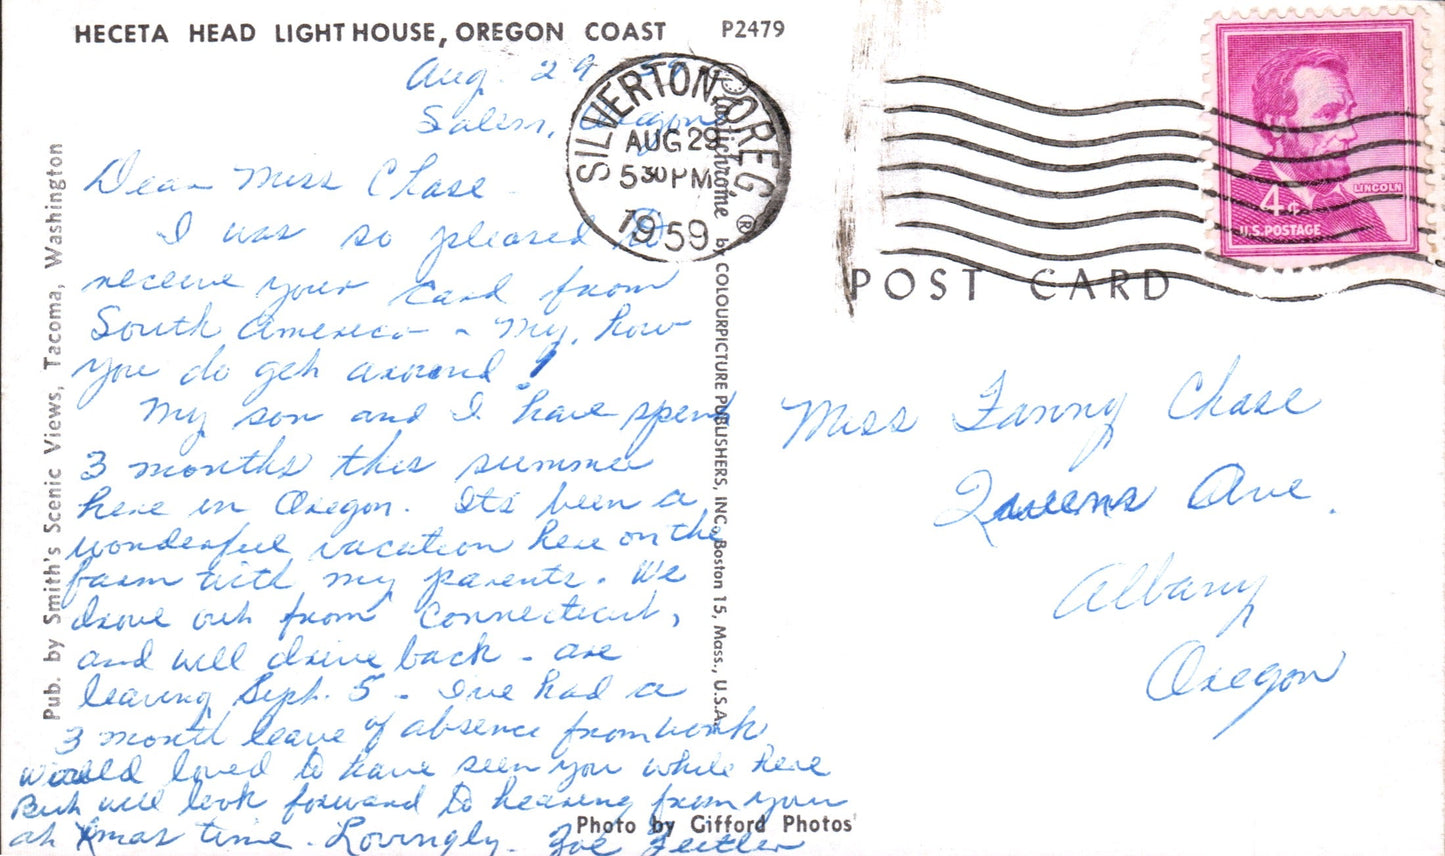 HECETA HEAD LIGHTHOUSE, OREGON COAST P2479
Aug 29
Salem, Oregon
Dear Miss Chase
I was so pleased to
receive your card from
South America - My, how
you do get around!
My son and I have spent
3 months this summer
here in Oregon. It's been a
wonderful vacation here on the
farm with my parents. We
drove out from Connecticut,
and will drive back - are
leaving Sept. 5 - I've had a
3 month leave of absence from work
Would loved to have seen you while here
But will look forward to hearing from you
at Xmas time. Lovingly. Zoe
Photo by Gifford Photos
Pub. by Smith's Scenic Views, Tacoma, Washington
Plastichrome ® by COLOURPICTURE PUBLISHERS, INC. Boston 15, Mass., U.S.A.
SILVERTON, OREG.
AUG 29
5 30 PM
1959
LINCOLN
4¢
U.S. POSTAGE
POST CARD
Miss Fanny Chase
Queens Ave.
Albany
Oregon